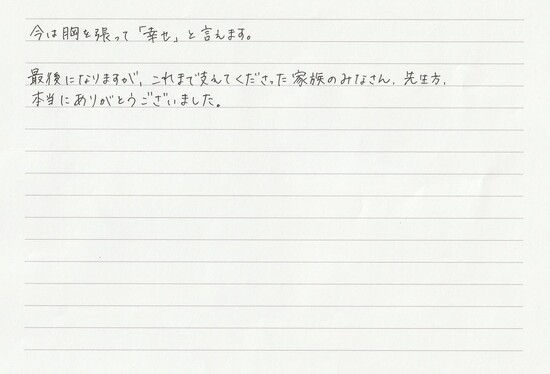 今は胸を張って「幸せ」と言えます。
最後になりますが、これまで支えてくださった家族のみなさん、先生方、
本当にありがとうございました。